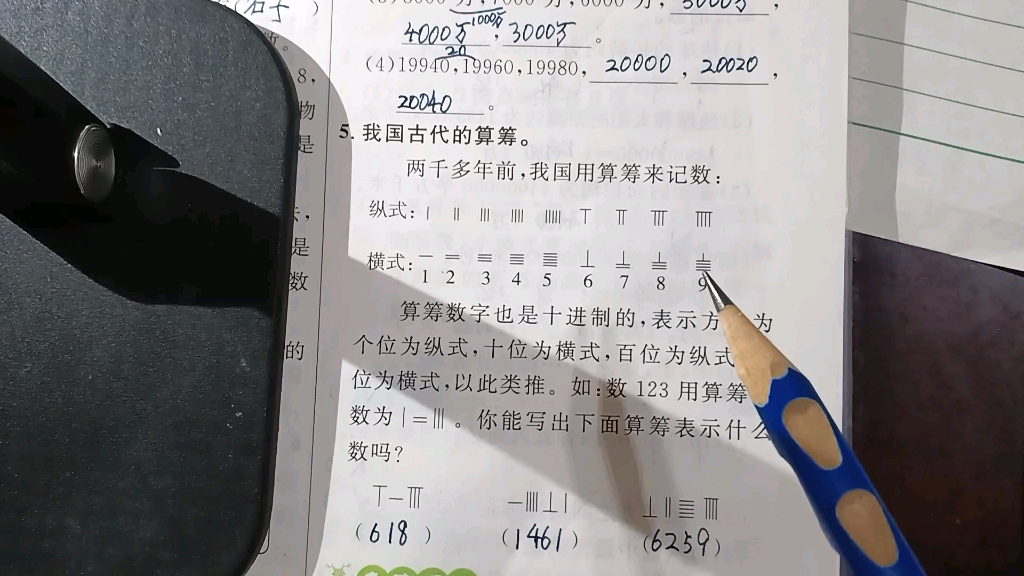 石子 )
8,
物
是
是
数
的
3000万,
4000万, 1000万 3000万。
20
(4)19940,19960,19980, 20000, 20020,
20040。
5. 我国古代的算筹。
两千多年前,我国用算筹来记数:
纵式: | || ||| |||| ||||| 丅
横式: 一 二 三 ⊥
1 2 3 4 5 6 7 8 9
算筹数字也是十进制的,表示方 为
个位为纵式,十位为横式,百位为纵式
位为横式,以此类推。如:数 123 用算筹
数为 |=|||。你能写出下面算筹表示什么
数吗?
(618) (1461) (6259)